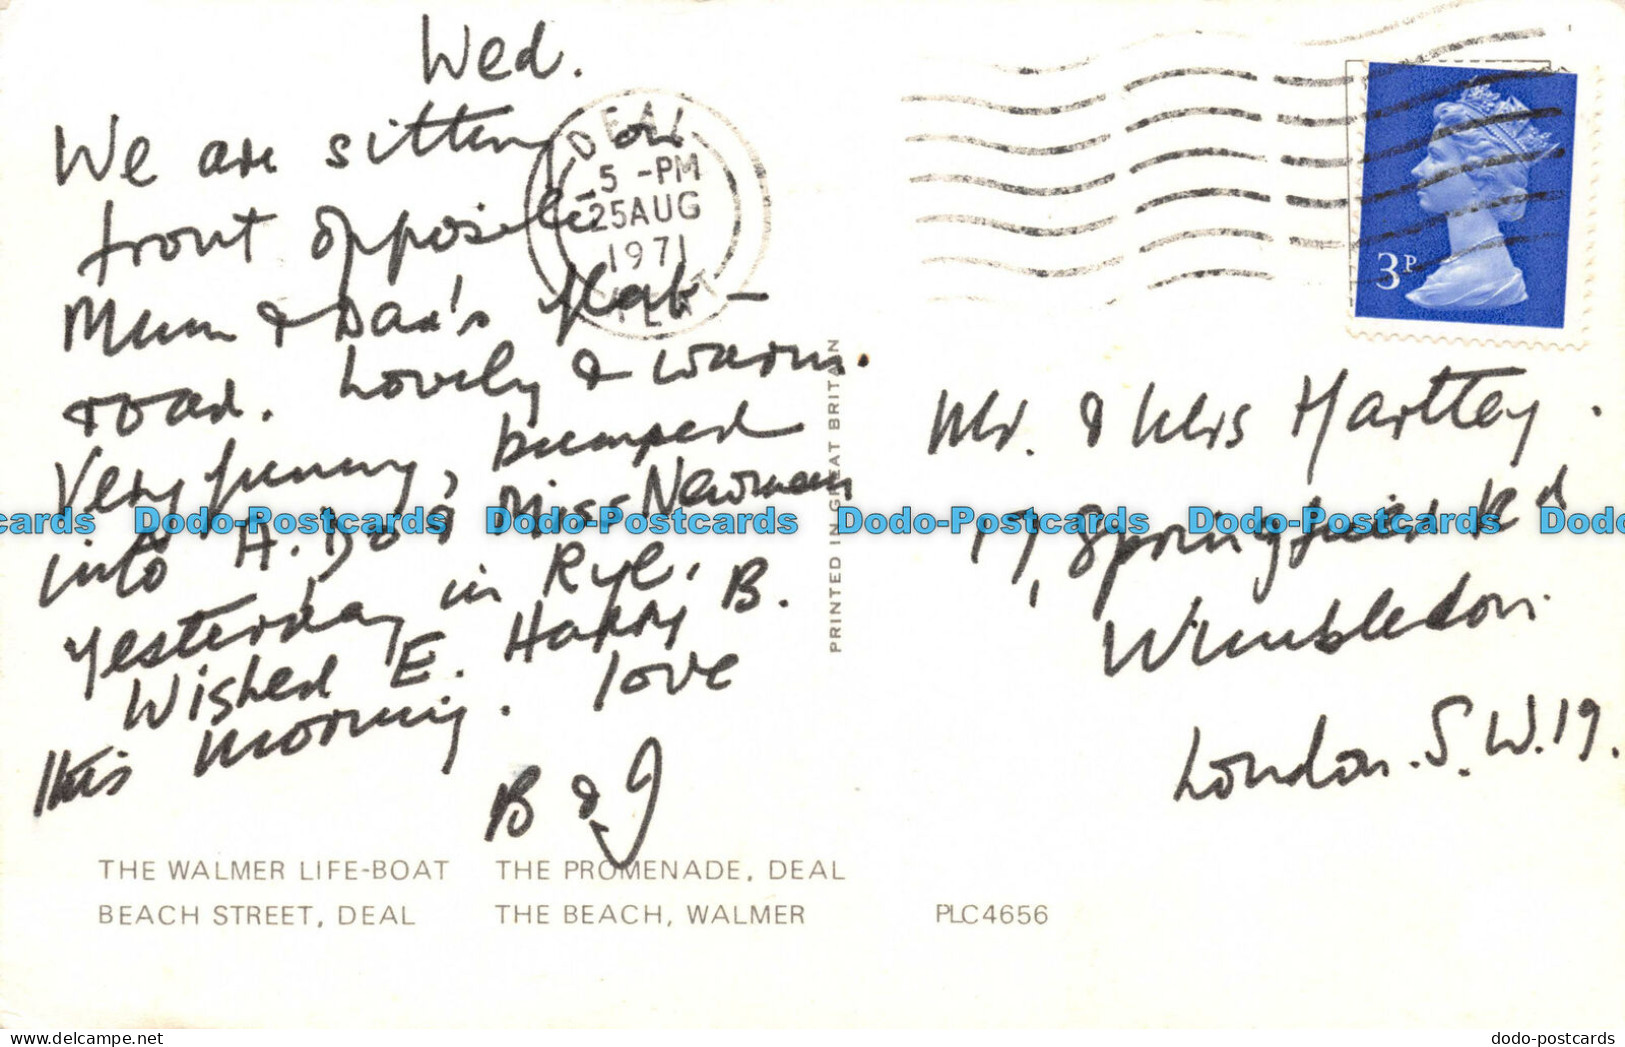 Wed.
We are sitting on
front opposite
Mum & Dad's flat –
road. Lovely & warm.
Very funny, bumped
into A. Do & Miss Newman
yesterday in Rye.
Wished E. Happy B.
this morning. love
B & J
DEAL
5 -PM
25 AUG
1971
KENT
3P
Mr. & Mrs Hartley.
17, Springfield Rd
Wimbledon.
London. S.W.19.
PRINTED IN GREAT BRITAIN
THE WALMER LIFE-BOAT THE PROMENADE, DEAL
BEACH STREET, DEAL THE BEACH, WALMER
PLC4656
Dodo-Postcards Dodo-Postcards Dodo-Postcards Dodo-Postcards
dodo-postcards